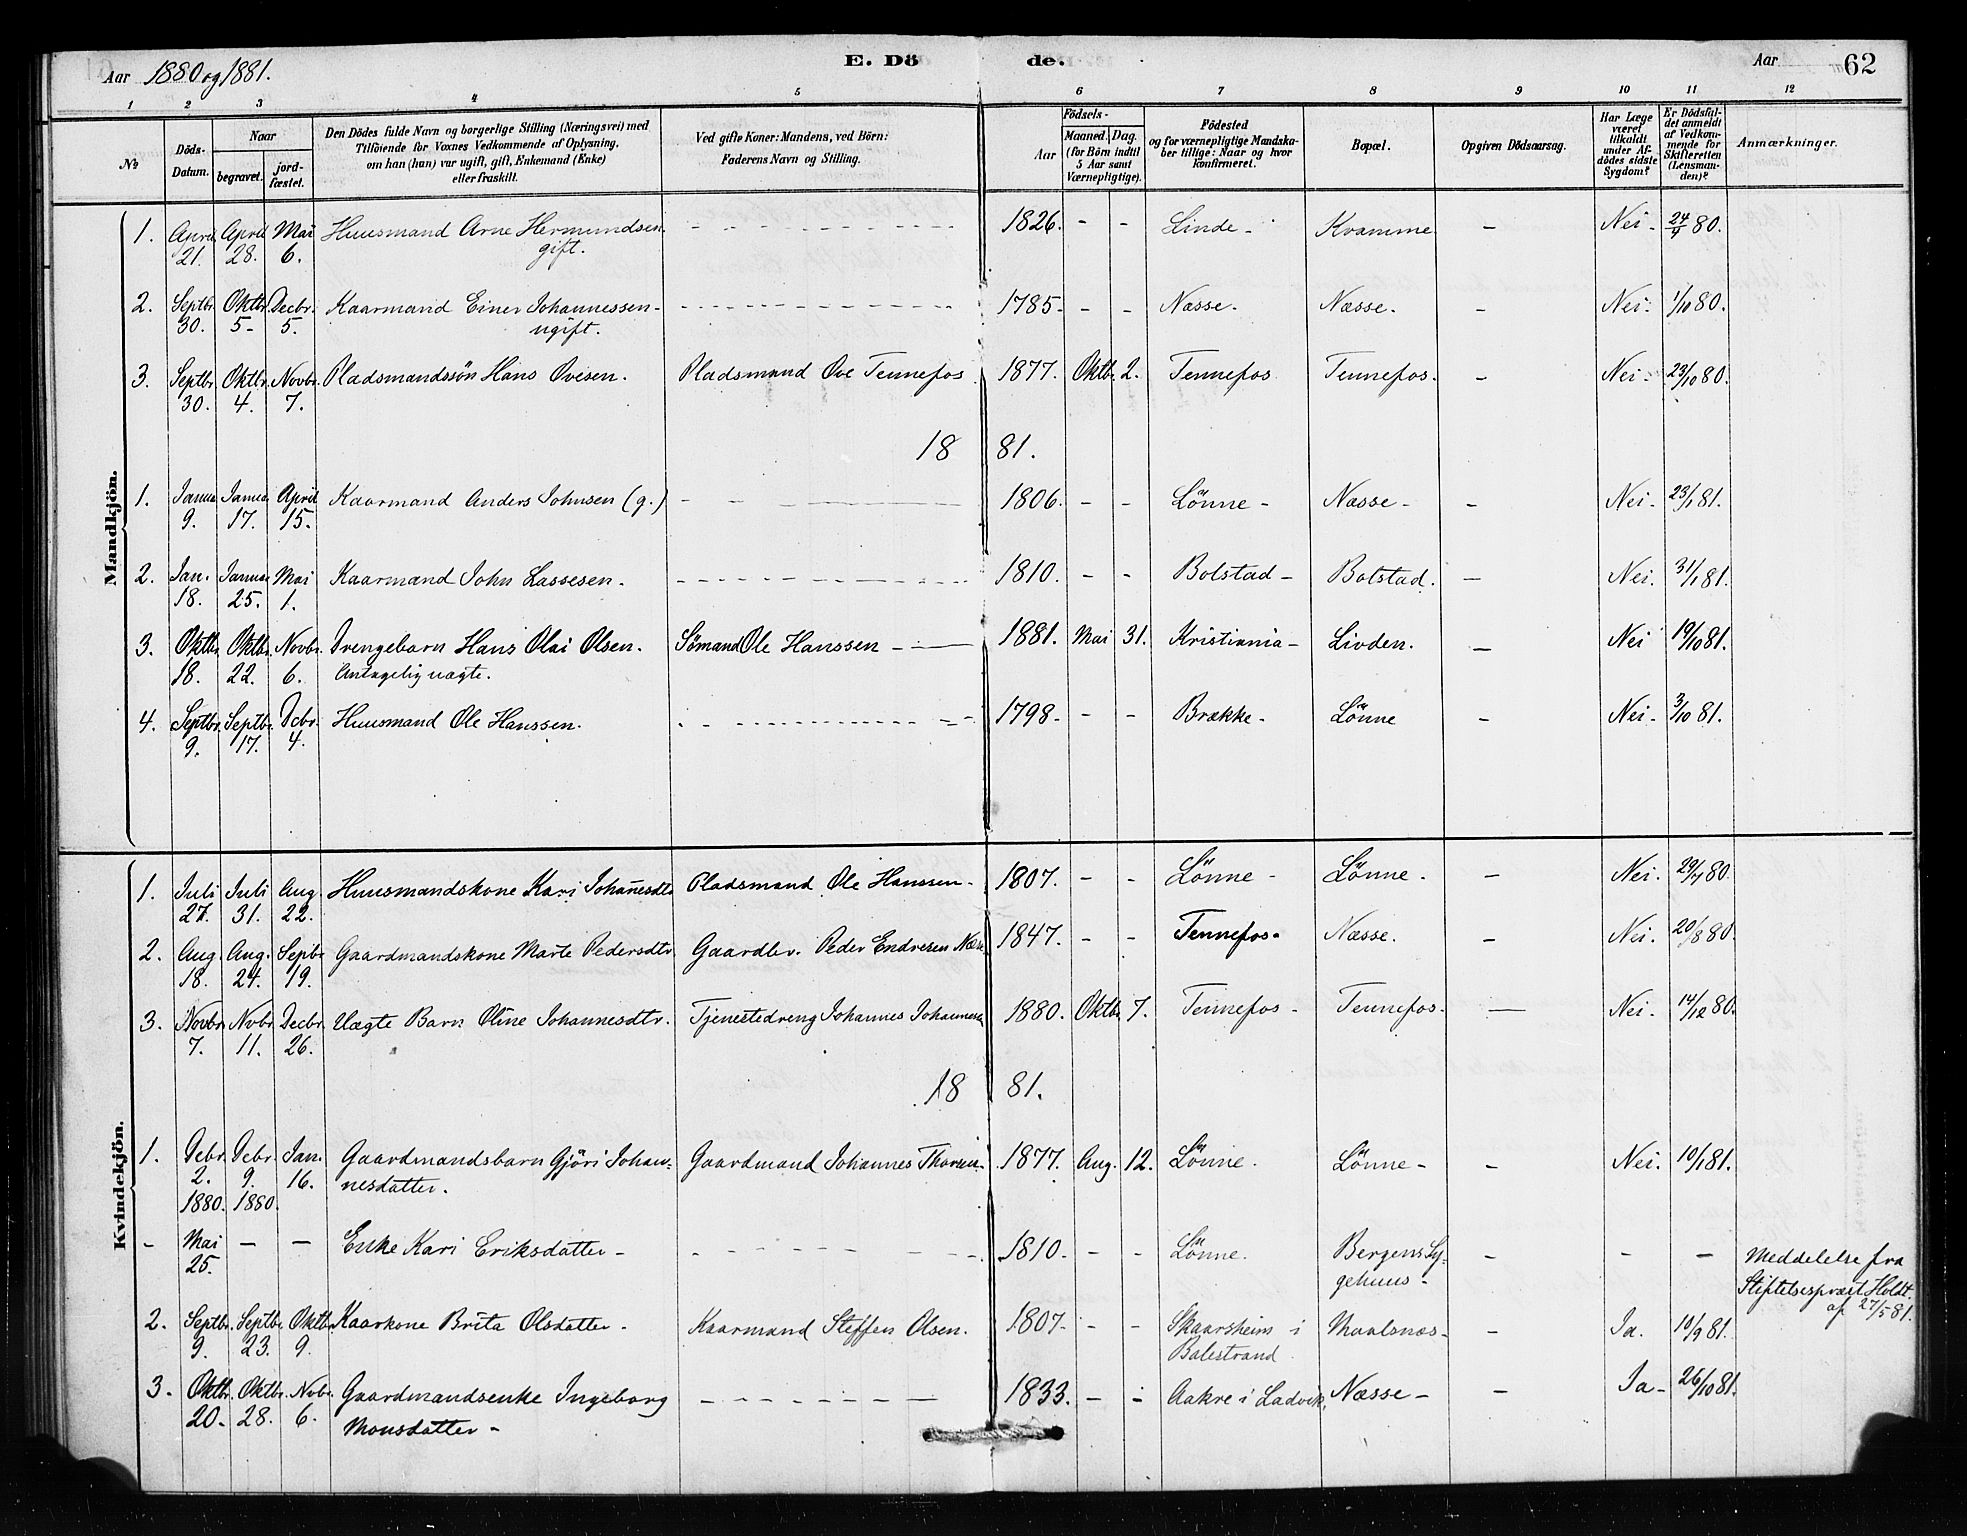 Aar 1880 og 1881. E. Dö de. Aar 62
1 2 3 4 5 6 7 8 9 10 11 12
No Döds-Datum. Naar begravet. jord-fæstet. Den Dödes fulde Navn og borgerlige Stilling (Næringsvei) med Tilföiende for Voxnes Vedkommende af Oplysning, om han (hun) var ugift, gift, Enkemand (Enke) eller fraskilt. Ved gifte Koner: Mandens, ved Börn: Faderens Navn og Stilling. Födsels- Aar Maaned. Dag. (for Börn indtil 5 Aar samt Værnepligtige). Födested og for værnepligtige Mandskaber tillige: Naar og hvor konfirmeret. Bopæl. Opgiven Dödsaarsag. Har Læge været tilkaldt under Afdödes sidste Sygdom? Er Dödsfaldet anmeldt af Vedkommende for Skifteretten (Lensmanden)? Anmærkninger.
Mandkjön.
1. April 21. April 28. Mai 6. Huusmand Arne Hermundsen gift. - 1826. - - Linde - Kvamme - Nei - 24/4 80.
2. Septbr. 30. Oktbr. 5 - Decbr. 5. Kaarmand Einer Johannessen - ugift. - 1785 - - - Næsse. Næsse. - Nei - 1/10 80.
3. Septbr. 30. Oktbr. 4. Novbr. 7. Pladsmandssön Hans Ovesen. Pladsmand Ove Tennefos 1877. Oktbr. 2. Tennefos Tennefos. - Nei - 23/10 80.
18 81.
1. Janua 9. Janua 17. April 15. Kaarmand Anders Johnsen (g.) - 1806. - - Lönne - Næsse - - Nei - 23/1 81.
2. Jan. 18. Janua 25. Mai 1. Kaarmand John Lassesen. - 1810. - - Bolstad - Bolstad. - Nei. 31/1 81.
3. Oktbr. 18. Oktbr. 22. Novbr. 6. Drengebarn Hans Olai Olsen. Antagelig uægte. Sömand Ole Hanssen - 1881. Mai 31. Kristiania - Livden. - Nei 19/10 81.
4. Septbr. 9. Septbr. 17. Dcbr. 4. Huusmand Ole Hanssen. - 1798 - - - Brække - Lönne - Nei - 3/10 81.
Kvindekjön.
1. Juli 27. Juli 31. Aug. 22. Huusmandskone Kari Johañesdtr Pladsmand Ole Hanssen - 1807. - - Lönne - Lönne. - Nei. 29/7 80.
2. Aug. 18. Aug. 24. Septbr 19. Gaardmandskone Marte Pedersdtr Gaardbr. Peder Endresen Næsse 1847. - - Tennefos. Næsse. - Nei. 20/8 80.
3. Novbr. 7. Novbr. 11. Decbr. 26. Uægte Barn Oline Johannesdtr. Tjenestedreng Johannes Johannesen 1880. Oktbr. 7. Tennefos - Tennefos. - Nei. 14/12 80.
18 81.
1. Debr. 2. 1880. Debr. 9. 1880. Jan. 16. Gaardmandsbarn Gjöri Johan-
nesdatter. Gaardmand Johannes 1877. Aug. 12. Lönne. Lönne - - Nei. 10/1 81.
- Mai 25. - - Enke Kari Eriksdatter - - 1810 - - - Lönne. Bergens Sy-
gehuus - - - - Meddelelse fra
Stiftelsespræst Holdt
af 27/5 81.
2. Septbr. 9. Septbr. 23. Oktbr. 9. Kaarkone Brita Olsdatter - Kaarmand Steffen Olsen. 1807 - - - Skaarsheim i Balestrand Maalsnæs - - Ja. 10/9 81.
3. Oktbr. 20 - Oktbr. 28. Novbr. 6. Gaardmandsenke Ingeborg
Monsdatter - - 1833. - - Aakre i Ladvik, Næsse - - Ja - 26/10 81.